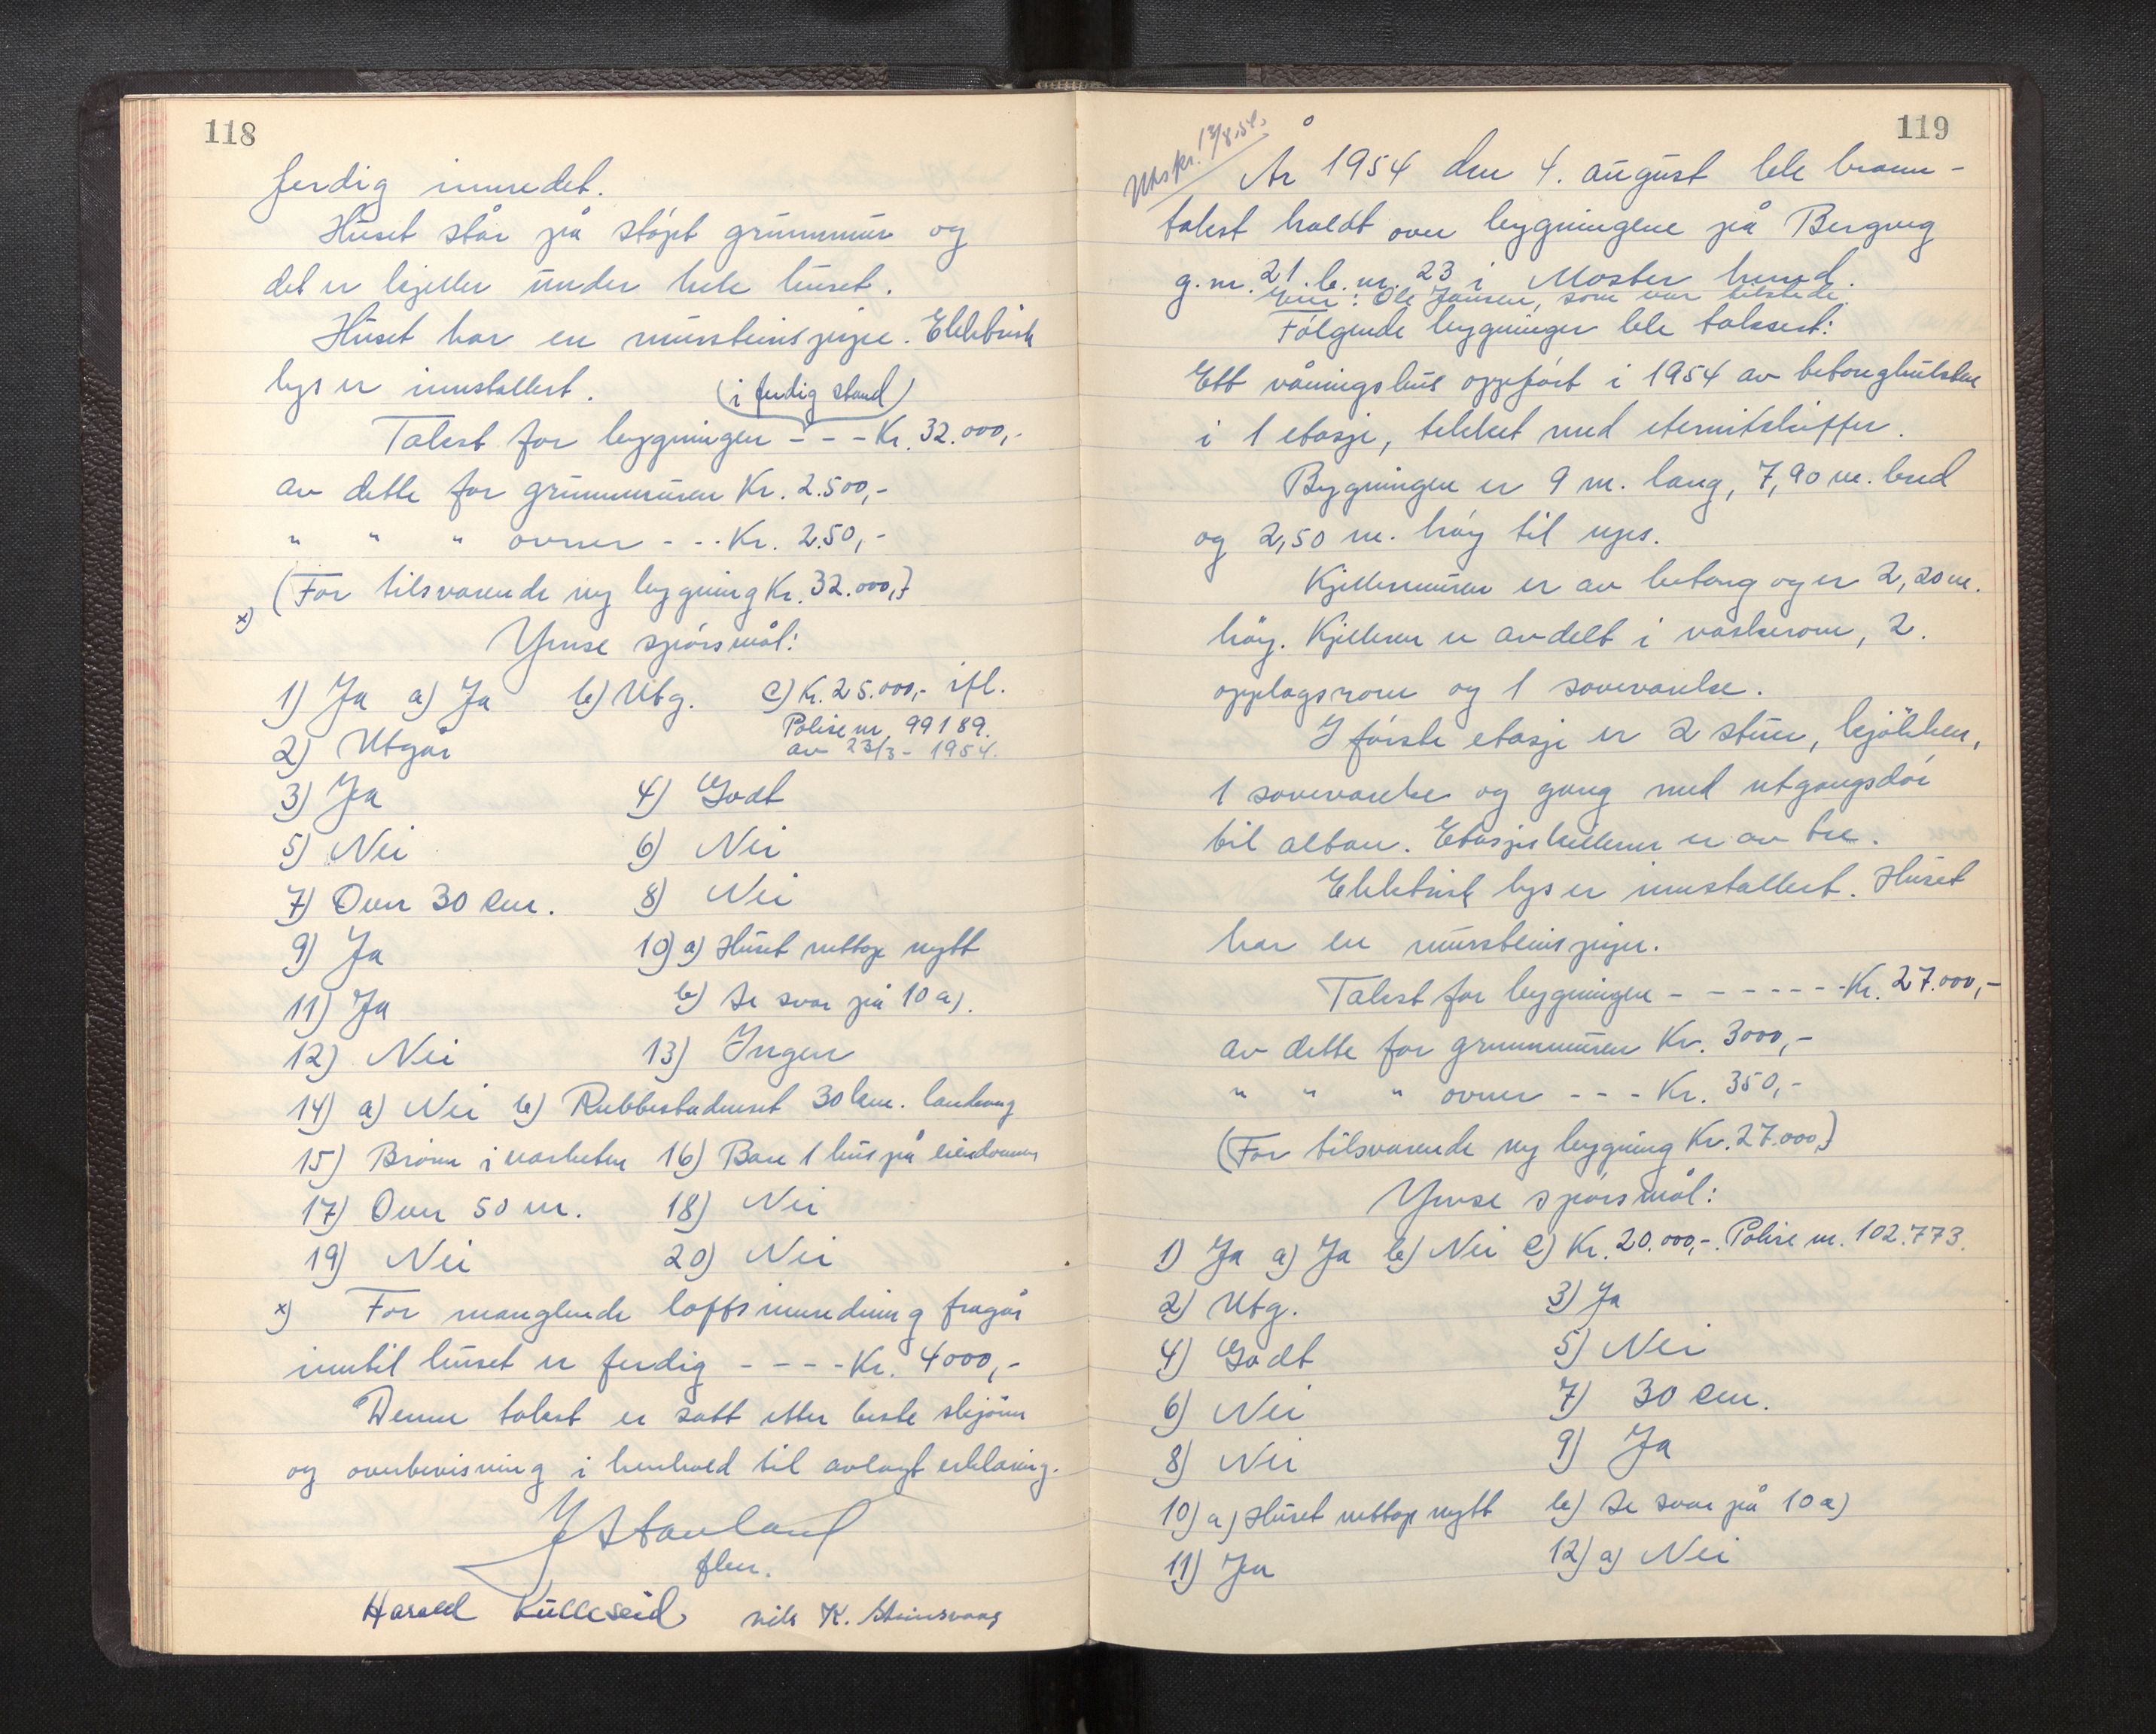 118
ferdig innredet.
Huset står på støpt grunnmur og
det er kjeller under hele huset.
Huset har en mursteinspipe. Elektrisk
lys er innstallert. (i ferdig stand)
Takst for bygningen - - - Kr. 32.000,-
av dette for grunnmuren Kr. 2.500,-
" " " ovner - - - Kr. 250,-
(For tilsvarende ny bygning Kr. 32.000,-)
x)
Ymse spørsmål:
1) Ja a) Ja b) Utg. c) Kr. 25.000,- ifl.
Polise nr. 99189.
av 23/3 - 1954.
2) Utgår
3) Ja 4) Godt
5) Nei 6) Nei
7) Over 30 cm. 8) Nei
9) Ja 10) a) Huset nettop nytt
11) Ja b) Se svar på 10 a).
12) Nei 13) Ingen
14) a) Nei b) Rubbestadneset 30 km. landveg
15) Brønn i nærheten 16) Bare 1 hus på eiendommen
17) Over 50 m. 18) Nei
19) Nei 20) Nei
x) For manglende loftsinnredning fragår
inntil huset er ferdig - - - - Kr. 4000,-
Denne takst er satt etter beste skjønn
og overbevisning i henhold til avlagt erklæring.
flm.
Harald Kulleseid Nils K. Steinsvaag
119
Utskr. 13/8.54.
År 1954 den 4. august ble brann-
takst holdt over bygningene på Bergveg
g.nr. 21. b.nr. 23 i Moster herred.
Eier: Ole Jansen, som var tilstede.
Følgende bygninger ble taksert:
Ett våningshus oppført i 1954 av betonghulsten
i 1 etasje, tekket med eternitskiffer.
Bygningen er 9 m. lang, 7,90 m. bred
og 2,50 m. høy til ups.
Kjellermuren er av betong og er 2,20 m.
høy. Kjelleren er avdelt i vaskerom, 2
opplagsrom og 1 soveværelse.
I første etasje er 2 stuer, kjøkken,
1 soveværelse og gang med utgangsdør
til altan. Etasjeskilleren er av tre.
Elektrisk lys er innstallert. Huset
har en mursteinspipe.
Takst for bygningen - - - - - - Kr. 27.000,-
av dette for grunnmuren Kr. 3000,-
" " " ovner - - - Kr. 350,-
(For tilsvarende ny bygning Kr. 27.000,-)
Ymse spørsmål:
1) Ja a) Ja b) Nei c) Kr. 20.000,-. Polise nr. 102.773.
2) Utg. 3) Ja
4) Godt 5) Nei
6) Nei 7) 30 cm.
8) Nei 9) Ja
10) a) Huset nettop nytt b) Se svar på 10 a)
11) Ja 12) a) Nei